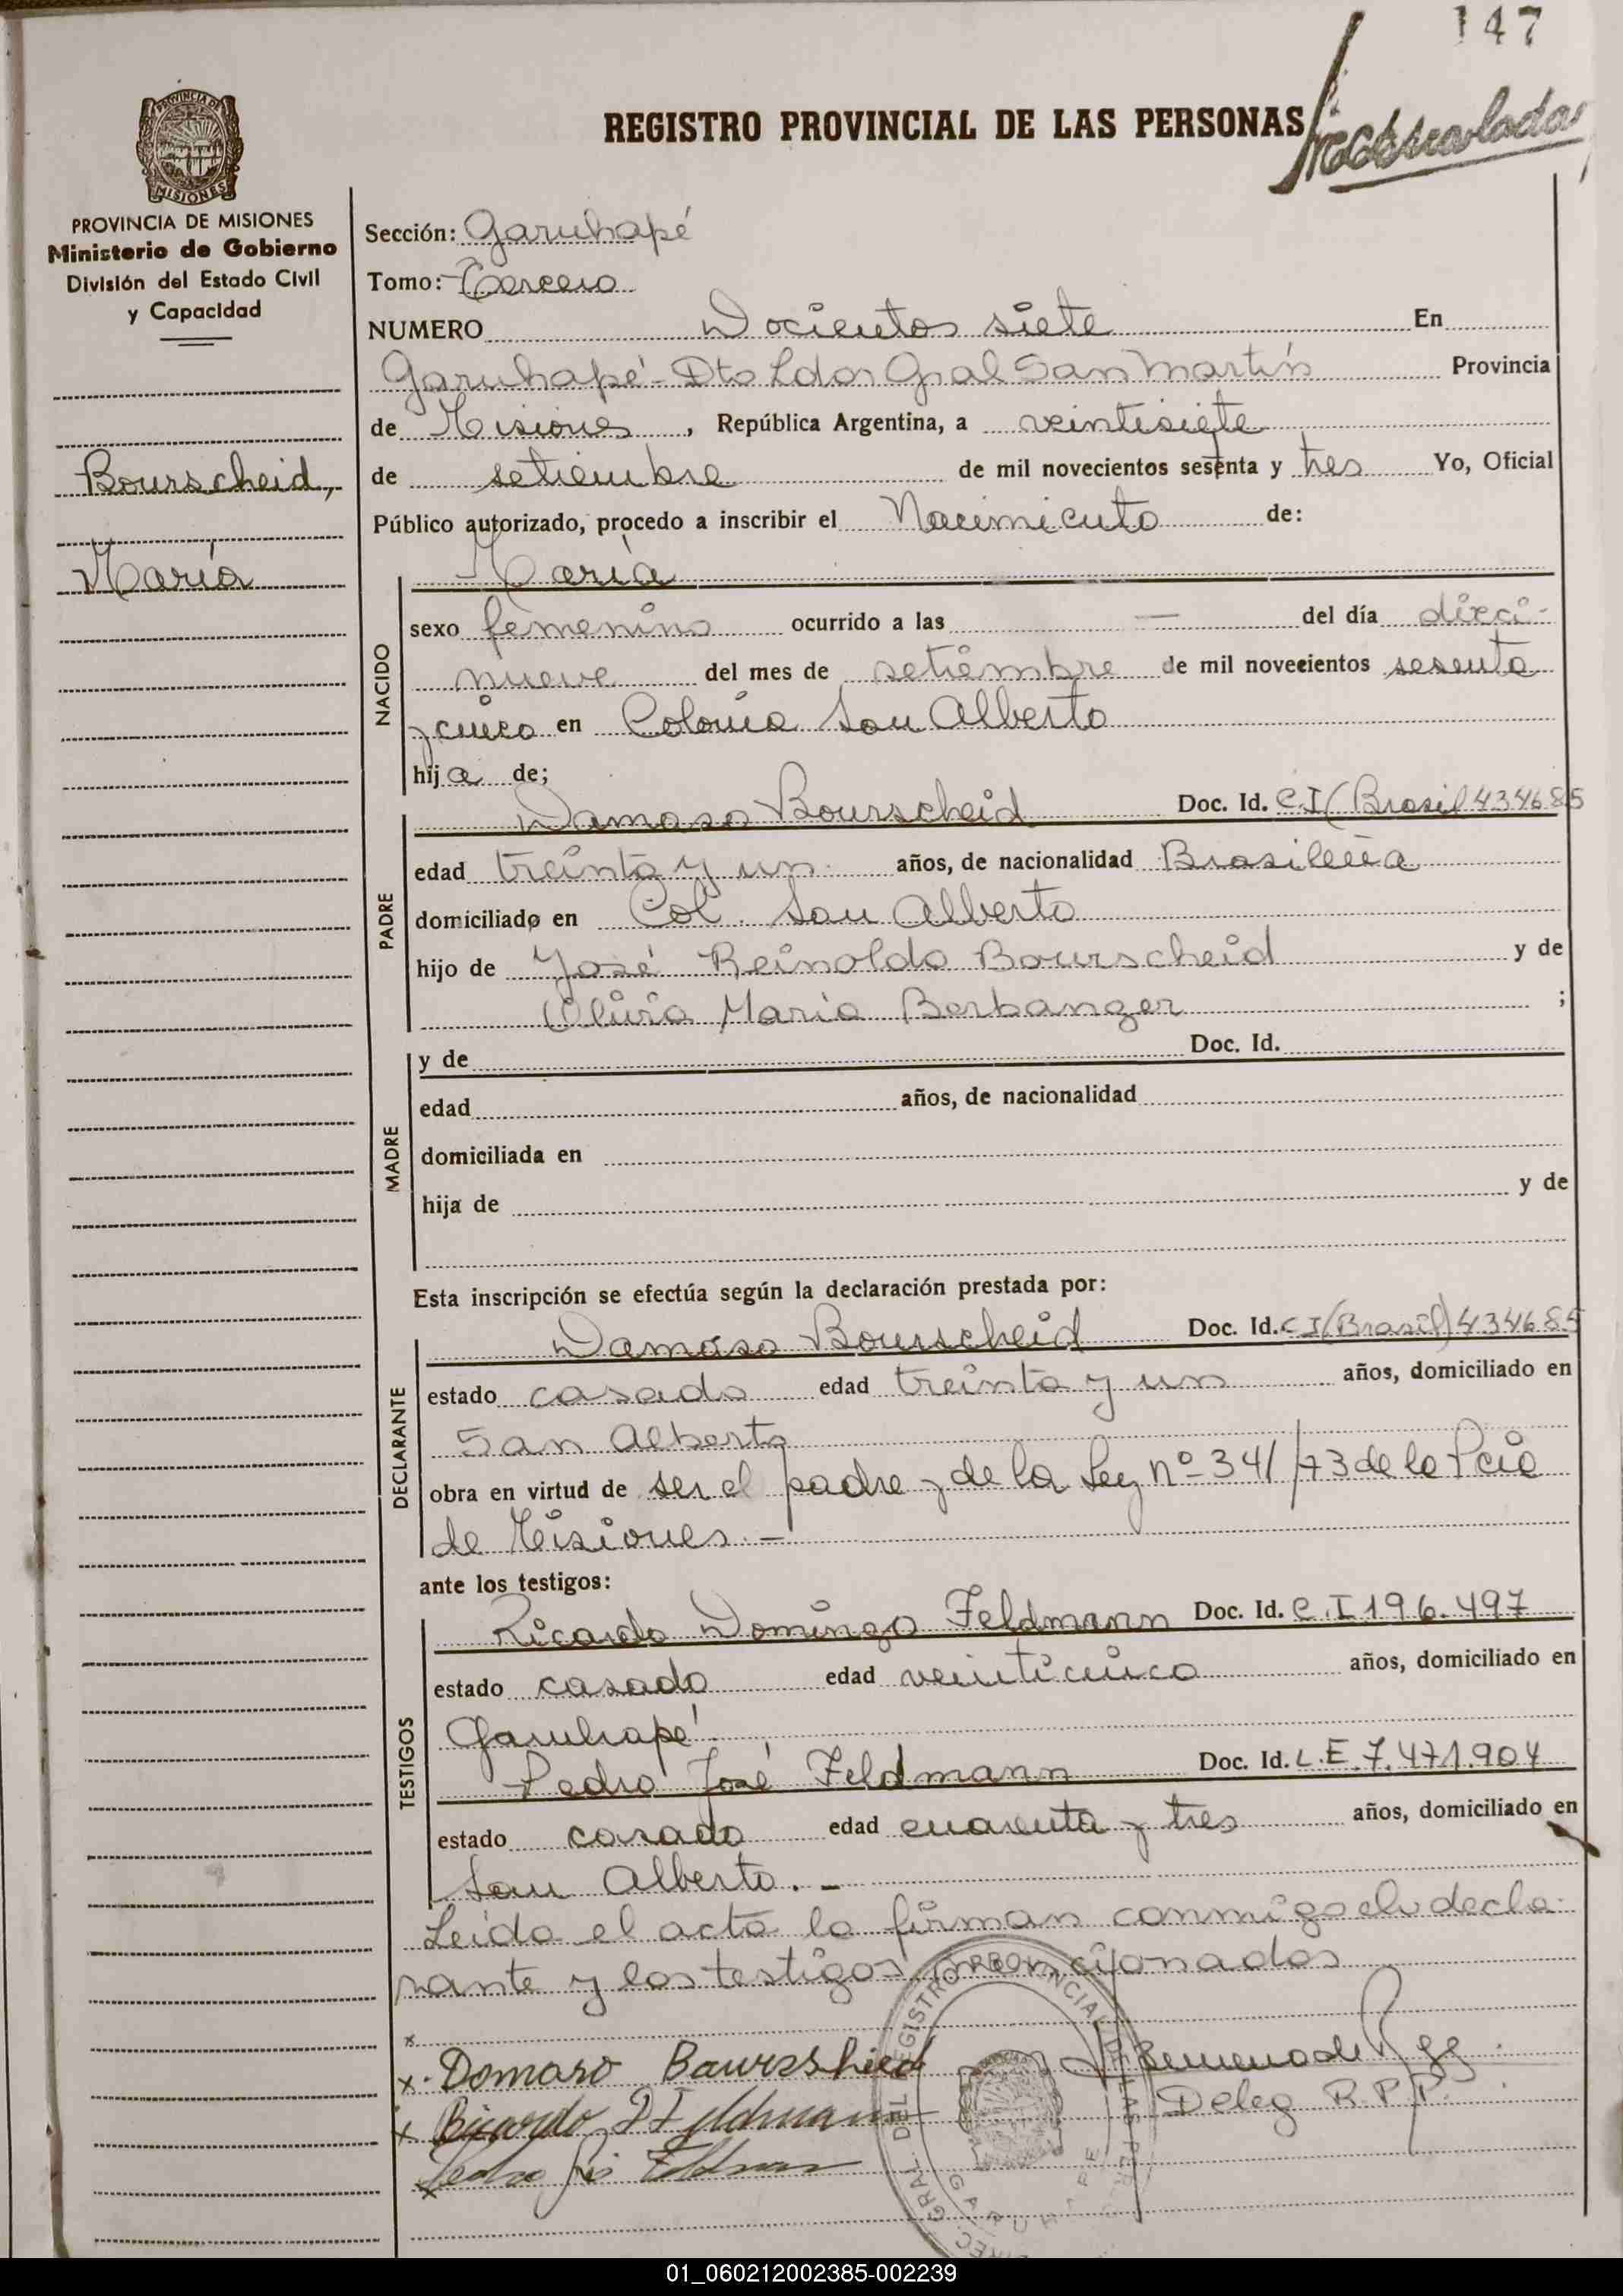 147
REGISTRO PROVINCIAL DE LAS PERSONAS
PROVINCIA DE MISIONES
PROVINCIA DE MISIONES
Ministerio de Gobierno
División del Estado Civil
y Capacidad
Bourscheid,
María
Sección: Garuhapé
Tomo: Tercero
NUMERO Docientos siete En
Garuhapé - Dto Ldor Gral San Martín Provincia
de Misiones, República Argentina, a veintisiete
de setiembre de mil novecientos sesenta y tres Yo, Oficial
Público autorizado, procedo a inscribir el Nacimiento de:
María
NACIDO
sexo femenino ocurrido a las — del día dieci-
nueve del mes de setiembre de mil novecientos sesenta
y cinco en Colonia San Alberto
hija de;
PADRE
Damaso Bourscheid Doc. Id. C.I (Brasil 434685
edad treinta y un años, de nacionalidad Brasileña
domiciliado en Col. San Alberto
hijo de José Reinoldo Bourscheid y de
Olivia Maria Berbanger ;
MADRE
y de Doc. Id.
edad años, de nacionalidad
domiciliada en
hija de y de
Esta inscripción se efectúa según la declaración prestada por:
DECLARANTE
Damaso Bourscheid Doc. Id. C I (Brasil) 434685
estado casado edad treinta y un años, domiciliado en
San Alberto
obra en virtud de ser el padre y de la Ley nº 341/73 de la Pcia
de Misiones. —
ante los testigos:
TESTIGOS
Ricardo Domingo Feldmann Doc. Id. C.I 196.497
estado casado edad veinticinco años, domiciliado en
Garuhapé
Pedro José Feldmann Doc. Id. L.E 7.471.904
estado casado edad cuarenta y tres años, domiciliado en
San Alberto. —
Leida el acta la firman conmigo el decla-
rante y los testigos mencionados
x
x. Domaso Baursshied
x Ricardo D Feldmann
x Pedro José Feldman
Deleg R.P.P.
DIREC. GRAL. DEL REGISTRO PROVINCIAL DE LAS PERSONAS
GARUHAPE
01_060212002385-002239